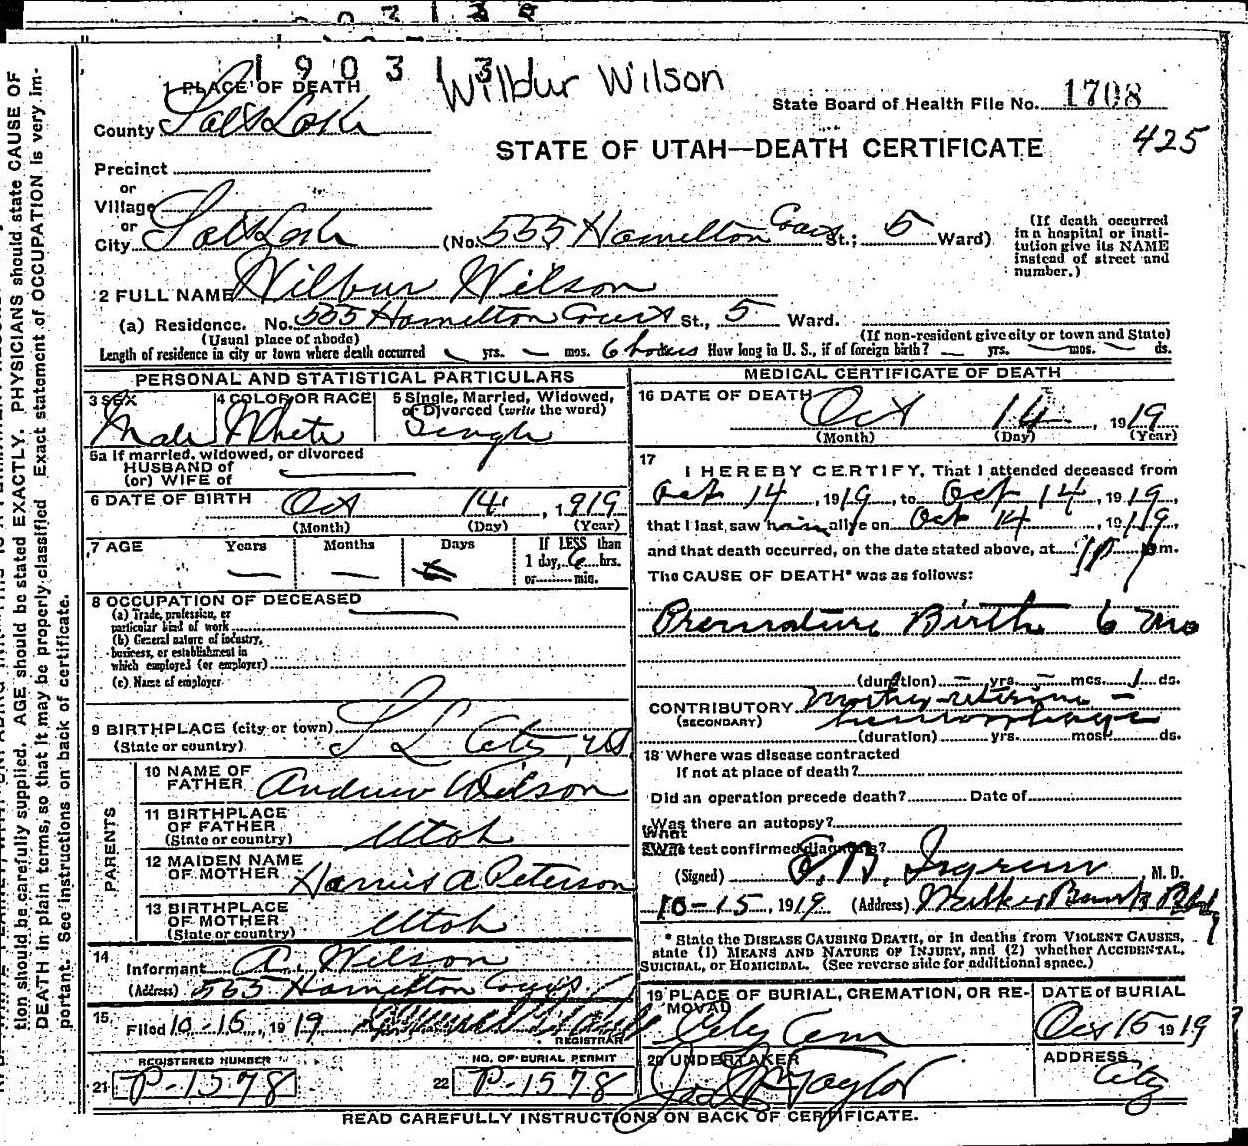 190313
Wilbur Wilson
1 PLACE OF DEATH
State Board of Health File No. 1708
County Salt Lake
425
STATE OF UTAH—DEATH CERTIFICATE
Precinct
or
Village
or
City Salt Lake (No. 555 Hamilton Court St.; 5 Ward)
(If death occurred in a hospital or institution give its NAME instead of street and number.)
2 FULL NAME Wilbur Wilson
(a) Residence. No. 555 Hamilton Court St., 5 Ward.
(Usual place of abode) (If non-resident give city or town and State)
Length of residence in city or town where death occurred — yrs. — mos. 6 hours How long in U. S., if of foreign birth? — yrs. — mos. ds.
PERSONAL AND STATISTICAL PARTICULARS
3 SEX Male
4 COLOR OR RACE White
5 Single, Married, Widowed, or Divorced (write the word) Single
5a If married, widowed, or divorced
HUSBAND of
(or) WIFE of
6 DATE OF BIRTH Oct 14, 1919
(Month) (Day) (Year)
7 AGE Years — Months — Days
If LESS than
1 day, 6 hrs.
or ........ min.
8 OCCUPATION OF DECEASED
(a) Trade, profession, or
particular kind of work
(b) General nature of industry,
business, or establishment in
which employed (or employer)
(c) Name of employer
9 BIRTHPLACE (city or town) S L City, Ut
(State or country)
PARENTS
10 NAME OF FATHER Andrew Wilson
11 BIRTHPLACE OF FATHER Utah
(State or country)
12 MAIDEN NAME OF MOTHER A Peterson
13 BIRTHPLACE OF MOTHER Utah
(State or country)
14 Informant A. Wilson
(Address) 555 Hamilton Court
15 Filed 10-15, 1919
REGISTRAR
REGISTERED NUMBER
21 P-1578
NO. OF BURIAL PERMIT
22 P-1578
MEDICAL CERTIFICATE OF DEATH
16 DATE OF DEATH Oct 14, 1919
(Month) (Day) (Year)
17
I HEREBY CERTIFY, That I attended deceased from
Oct 14, 1919, to Oct 14, 1919,
that I last saw him alive on Oct 14, 1919,
and that death occurred, on the date stated above, at 10 p m.
The CAUSE OF DEATH* was as follows:
Premature Birth 6 mo
(duration) — yrs. — mos. 1 ds.
CONTRIBUTORY Mother uterine —
(SECONDARY) hemorrhage
(duration) yrs. mos. ds.
18 Where was disease contracted
If not at place of death?
Did an operation precede death? Date of
Was there an autopsy?
What test confirmed diagnosis?
(Signed) Ingram M. D.
10-15, 1919 (Address) Walker Bank Bldg
* State the DISEASE CAUSING DEATH, or in deaths from VIOLENT CAUSES,
state (1) MEANS AND NATURE OF INJURY, and (2) whether ACCIDENTAL,
SUICIDAL, or HOMICIDAL. (See reverse side for additional space.)
19 PLACE OF BURIAL, CREMATION, OR REMOVAL
City Cem
DATE of BURIAL
Oct 15 1919
20 UNDERTAKER
Taylor
ADDRESS
City
READ CAREFULLY INSTRUCTIONS ON BACK OF CERTIFICATE.
tion should be carefully supplied. AGE should be stated EXACTLY. PHYSICIANS should state CAUSE OF
DEATH in plain terms, so that it may be properly classified. Exact statement of OCCUPATION is very im-
portant. See instructions on back of certificate.